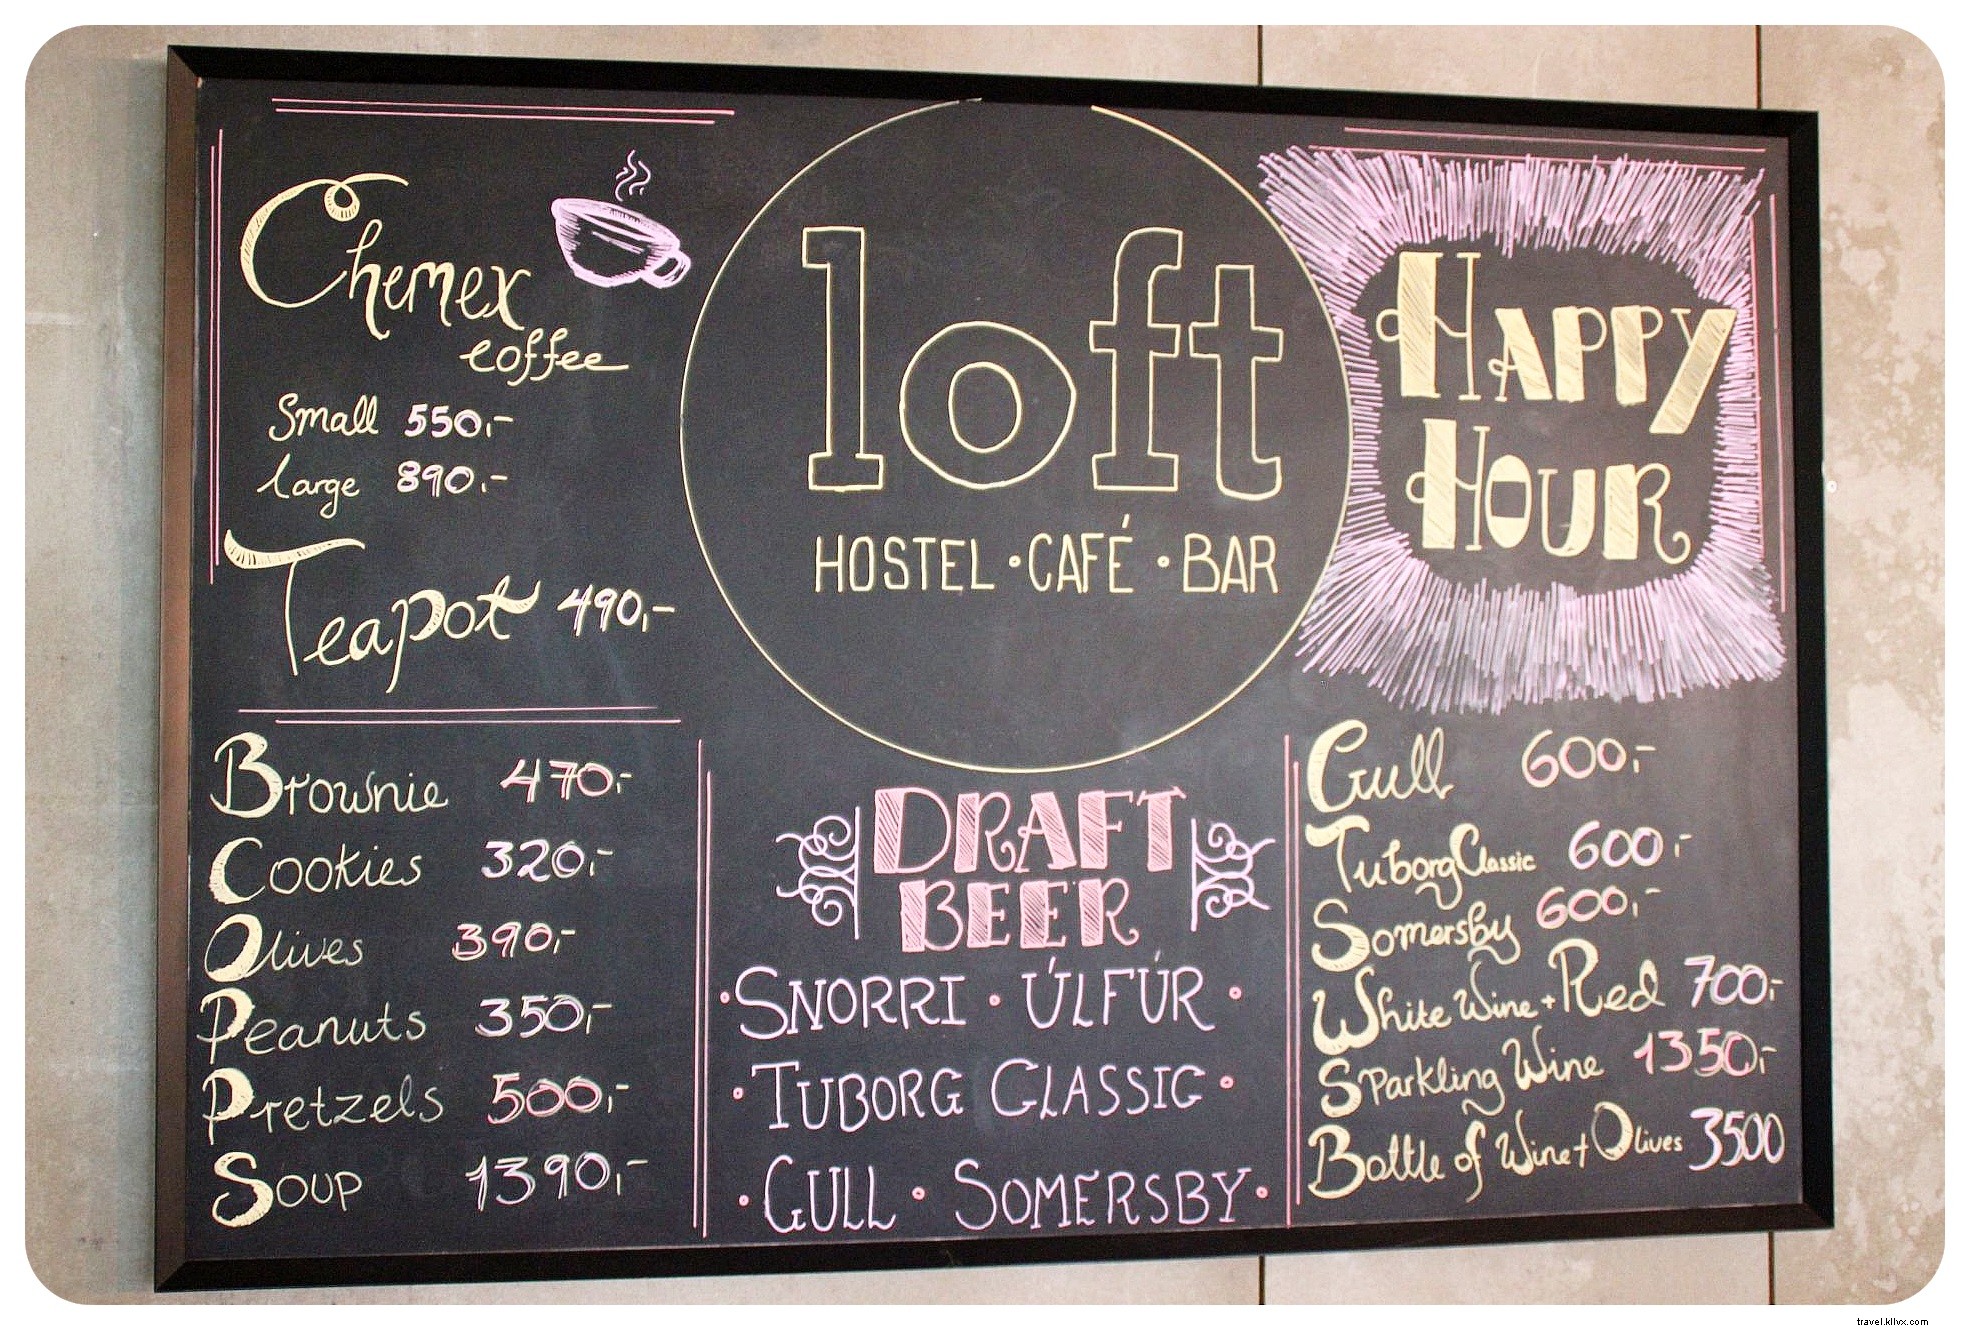 Chemex
coffee
Small 550,-
large 890.-
Teapot 490,-
loft
HOSTEL · CAFÉ · BAR
HAPPY
HOUR
Brownie 470,-
Cookies 320,-
Olives 390,-
Peanuts 350,-
Pretzels 500,-
Soup 1390,-
DRAFT
BEER
· SNORRI · ÚLFÚR ·
· TUBORG CLASSIC ·
· GULL · SOMERSBY ·
Gull 600,-
Tuborg Classic 600,-
Somersby 600,-
White Wine + Red 700,-
Sparkling Wine 1350,-
Bottle of Wine + Olives 3500
travel.kllvx.com